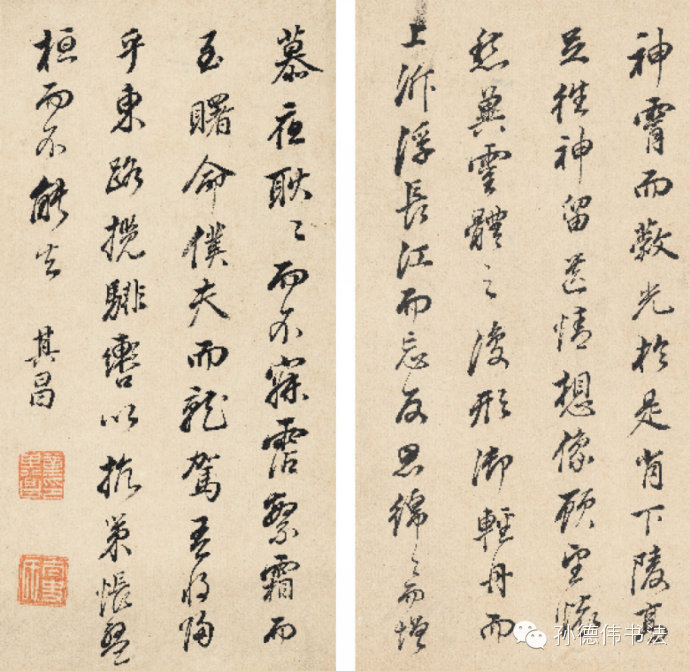 神霄而蔽光於是背下陵高
足往神留遺情想像顧望懷
愁冀靈體之復形御輕舟而
上泝浮長江而忘反思綿々而增
慕夜耿々而不寐霑繁霜而
至曙命僕夫而就駕吾將歸
乎東路攬騑轡以抗策悵盤
桓而不能去 其昌
孙德伟书法